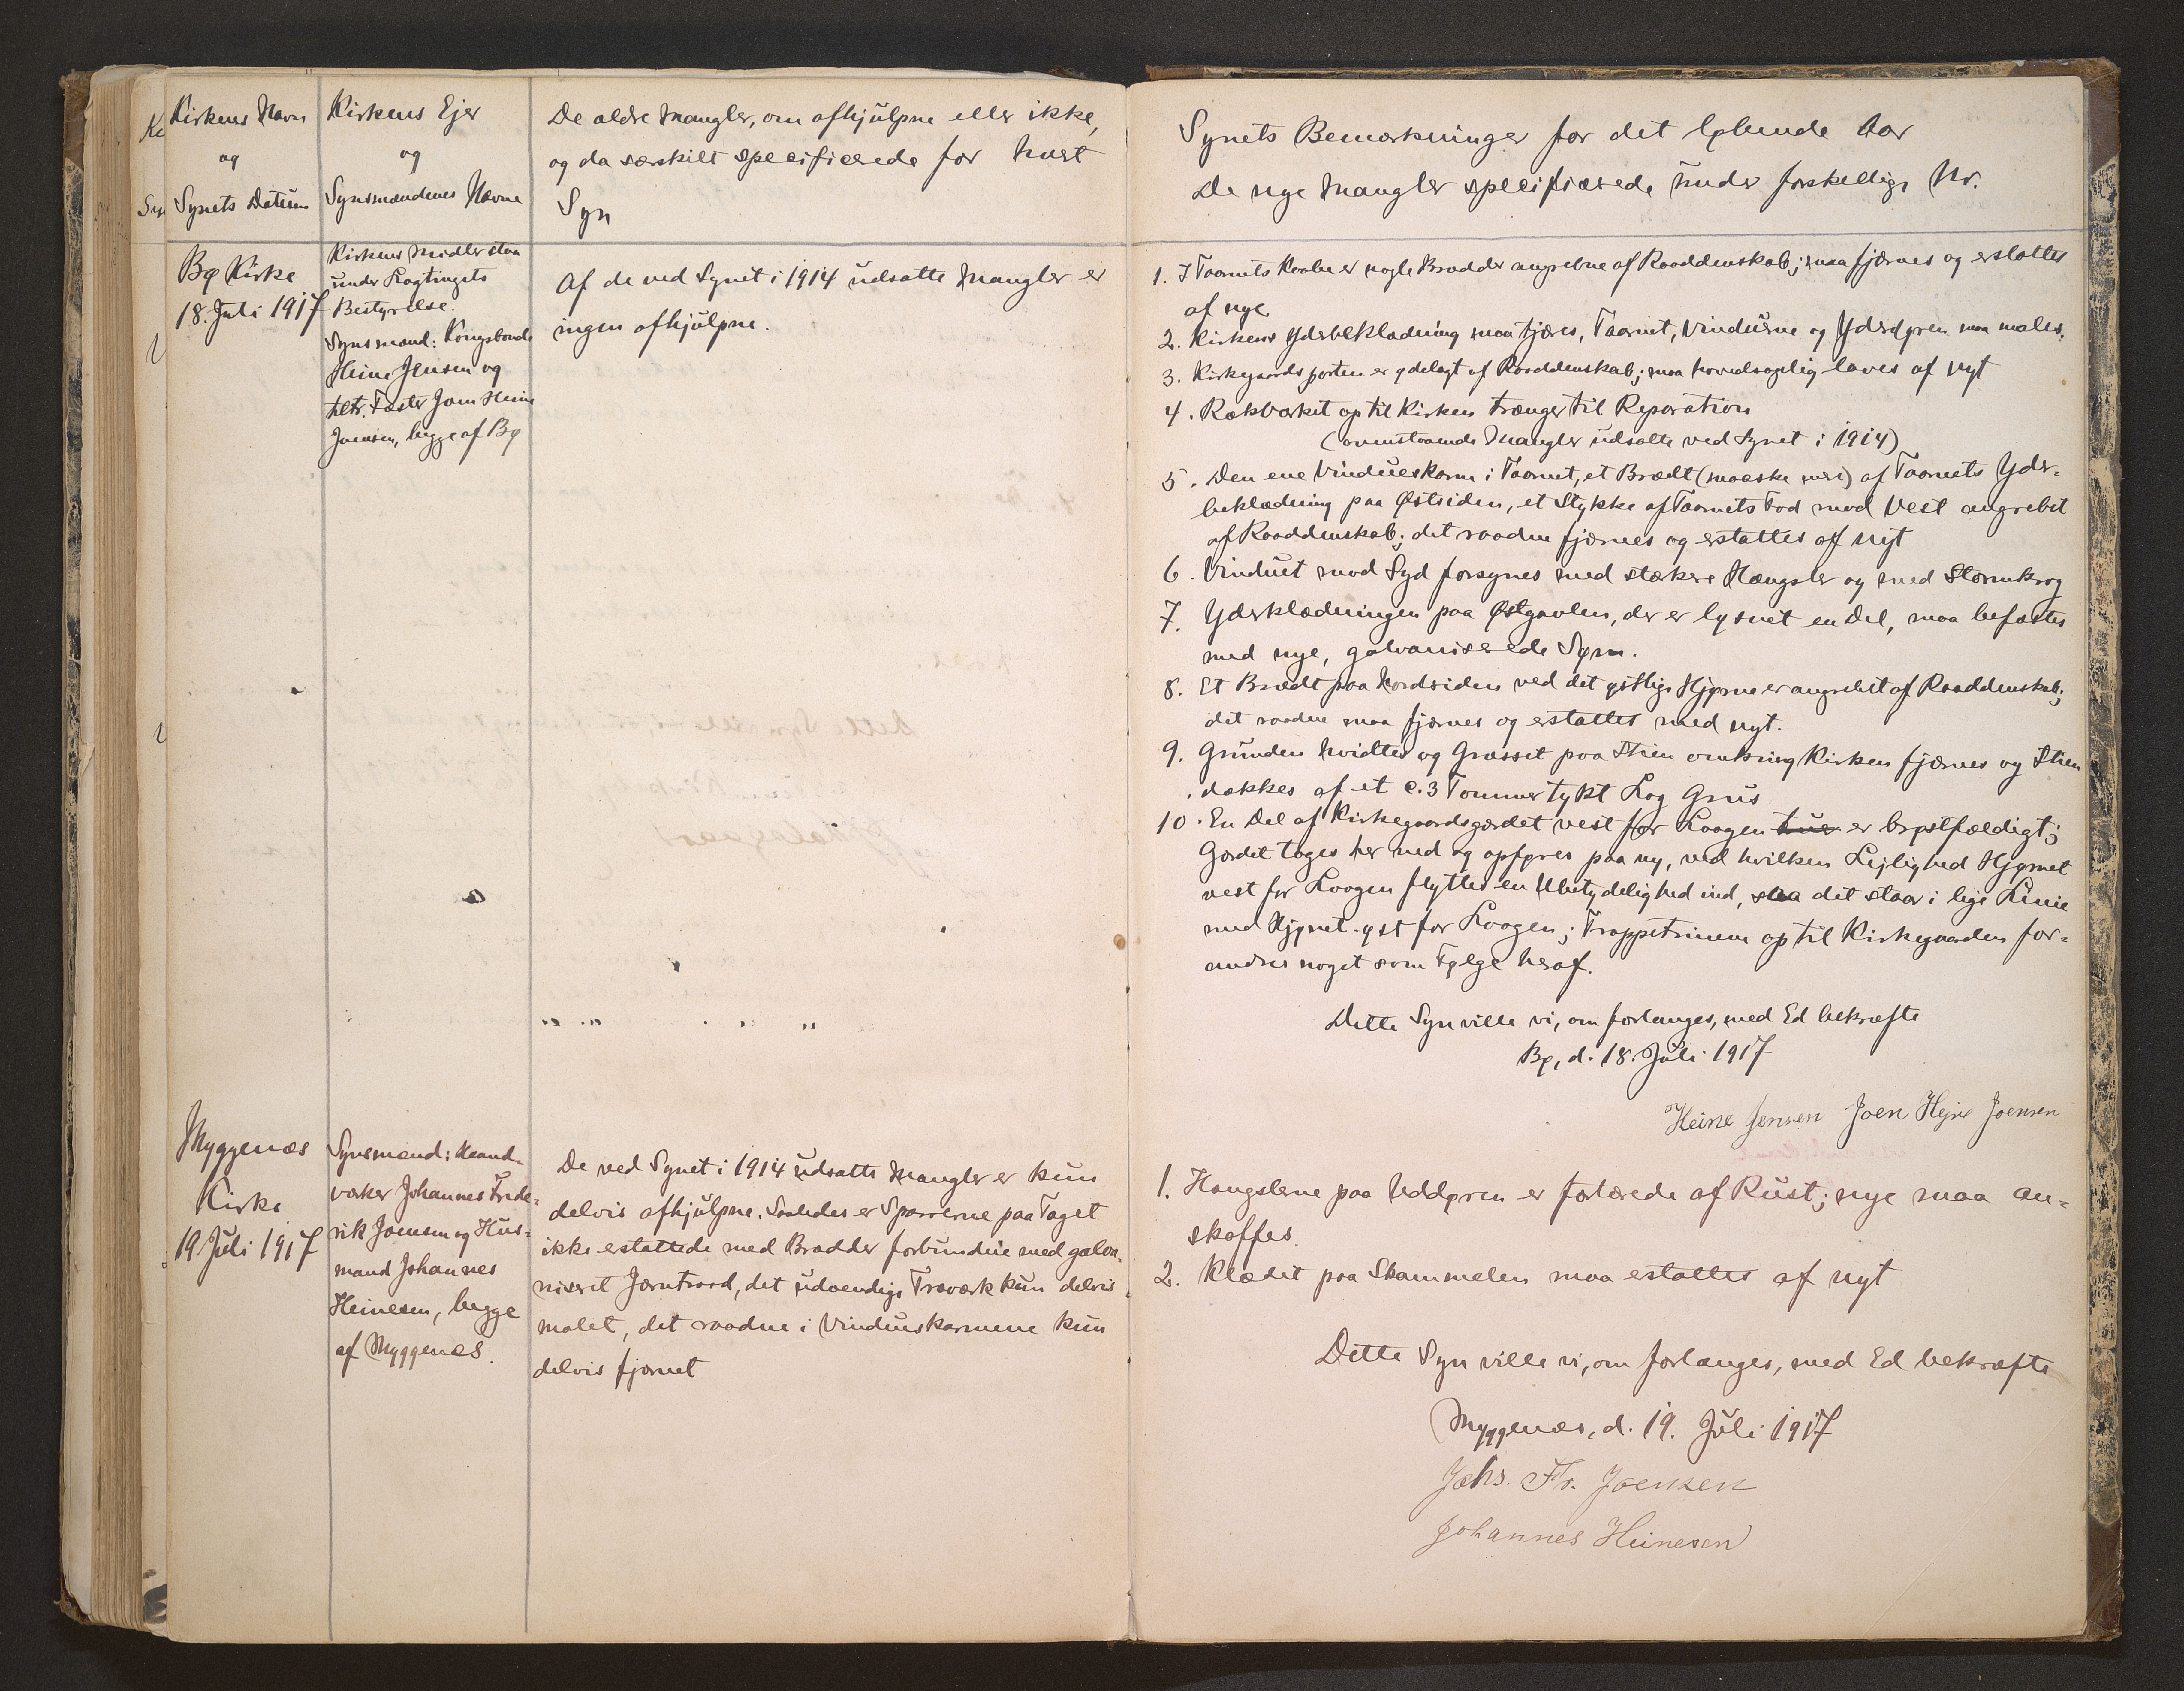 Kirkens Navn
og
Synets Datum
Kirkens Ejer
og
Synsmændenes Navne
De ældre Mangler, om afhjulpne eller ikke,
og da særskilt specificerede for hvert
Syn
Bø Kirke
18. Juli 1917
Kirkens Midler staa
under Lagtingets
Bestyrelse.
Synsmænd: Kongsbonde
Heine Jensen og
Fæster Joen Heine
Joensen, begge af Bø
Af de ved Synet i 1914 udsatte Mangler er
ingen afhjulpne.
Myggenæs
Kirke
19 Juli 1917
Synsmænd: Haand-
værker Johannes Frede-
rik Joensen og Hus-
mand Johannes
Heinesen, begge
af Myggenæs.
De ved Synet i 1914 udsatte Mangler er kun
delvis afhjulpne. Saaledes er Sparrerne paa Taget
ikke erstattede med Brædder forbundne med galva-
niseret Jærntraad, det udvendige Træværk kun delvis
malet, det raadne i Vindueskarmene kun
delvis fjærnet
Synets Bemærkninger for det løbende Aar
De nye Mangler specificerede under forskellige Nr.
1. I Taarnets er nogle Brædder angrebne af Raaddenskab; maa fjærnes og erstattes
af nye.
2. Kirkens Yderbeklædning maa tjæres, Taarnet, Vinduerne og Yderdøren maa males.
3. Kirkegaardsporten er ødelagt af Raaddenskab; maa hovedsagelig laves af nyt
4. Rækværket op til Kirken trænger til Reparation
(ovenstaaende Mangler udsatte ved Synet i 1914)
5. Den ene Vindueskarm i Taarnet, et Brædt (maaske mere) af Taarnets Yder-
beklædning paa Østsiden, et Stykke af Taarnets Fod mod Vest angrebet
af Raaddenskab; det raadne fjærnes og erstattes af nyt
6. Vinduet mod Syd forsynes med stærkere Hængsler og med Stormkrog
7. Yderklædningen paa Østgavlen, der er løsnet en Del, maa befæstes
med nye, galvaniserede Søm.
8. Et Brædt paa Nordsiden ved det østlige Hjørne er angrebet af Raaddenskab;
det raadne maa fjærnes og erstattes med nyt.
9. Grunden hvidtes og Græsset paa Stien omkring Kirken fjærnes og Stien
dækkes af et c. 3 Tommer tykt Lag Grus
10. En Del af Kirkegaardsgærdet vest for Laagen er brøstfældigt;
Gærdet tages her ned og opføres paa ny, ved hvilken Lejlighed Hjørnet
vest for Laagen flyttes en Ubetydelighed ind, saa det staar i lige Linie
med Hjørnet øst for Laagen; Trappetrinene op til Kirkegaarden for-
andres noget som Følge heraf.
Dette Syn ville vi, om forlanges, med Ed bekræfte
Bø, d. 18. Juli 1917
Heine Jensen Joen Hejne Joensen
1. Hængslerne paa Uddøren er fortærede af Rust; nye maa an-
skaffes.
2. Klædet paa Skammelen maa erstattes af nyt
Dette Syn ville vi, om forlanges, med Ed bekræfte
Myggenæs, d. 19. Juli 1917
Johs. Fr. Joensen
Johannes Heinesen